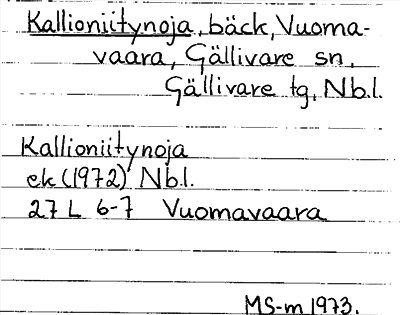 Kallioniitynoja, bäck, Vuoma-
vaara, Gällivare sn,
Gällivare tg, Nb.l.
Kallioniitynoja
ek (1972) Nb.l.
27 L 6-7 Vuomavaara
MS-m 1973.